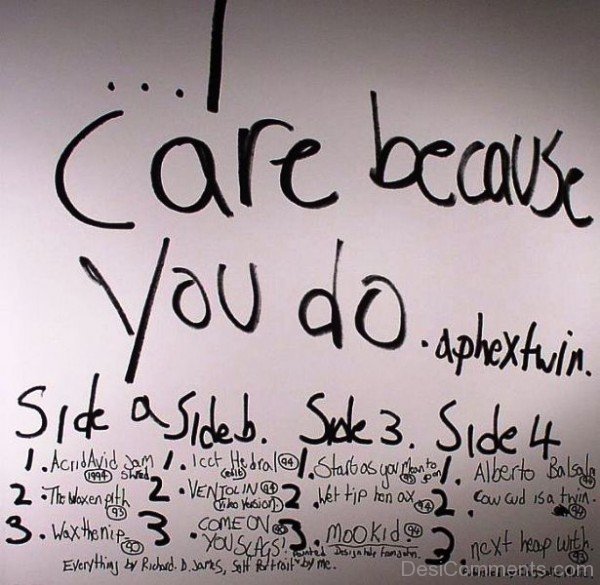 ...I
Care because
you do.
.aphextwin.
Side a
1. AcridAvid Jam
1994 Shred
2. The Waxen pith
93
3. Wax the nip
90
Side b.
1. Icct Hedral 94
(edit)
2. VENTOLIN 94
(Video Version).
3. COME ON
YOU SLAGS!
Side 3.
1. Start as you Mean to
go on
2. Wet tip hen ax. 94
3. MOOKid. 94
Side 4
1. Alberto Balsalm
2. Cow cud is a twin.
94
3. next heap with.
93
Everything by Richard. D. James, Self Portrait - by me.
DesiComments.com